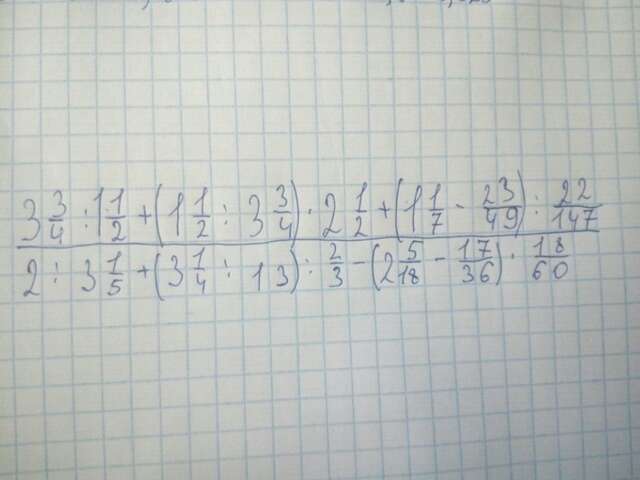 3 3/4 : 1 1/2 + (1 1/2 : 3 3/4) · 2 1/2 + (1 1/7 - 23/49) : 22/147
2 : 3 1/5 + (3 1/4 : 13) : 2/3 - (2 5/18 - 17/36) · 18/60